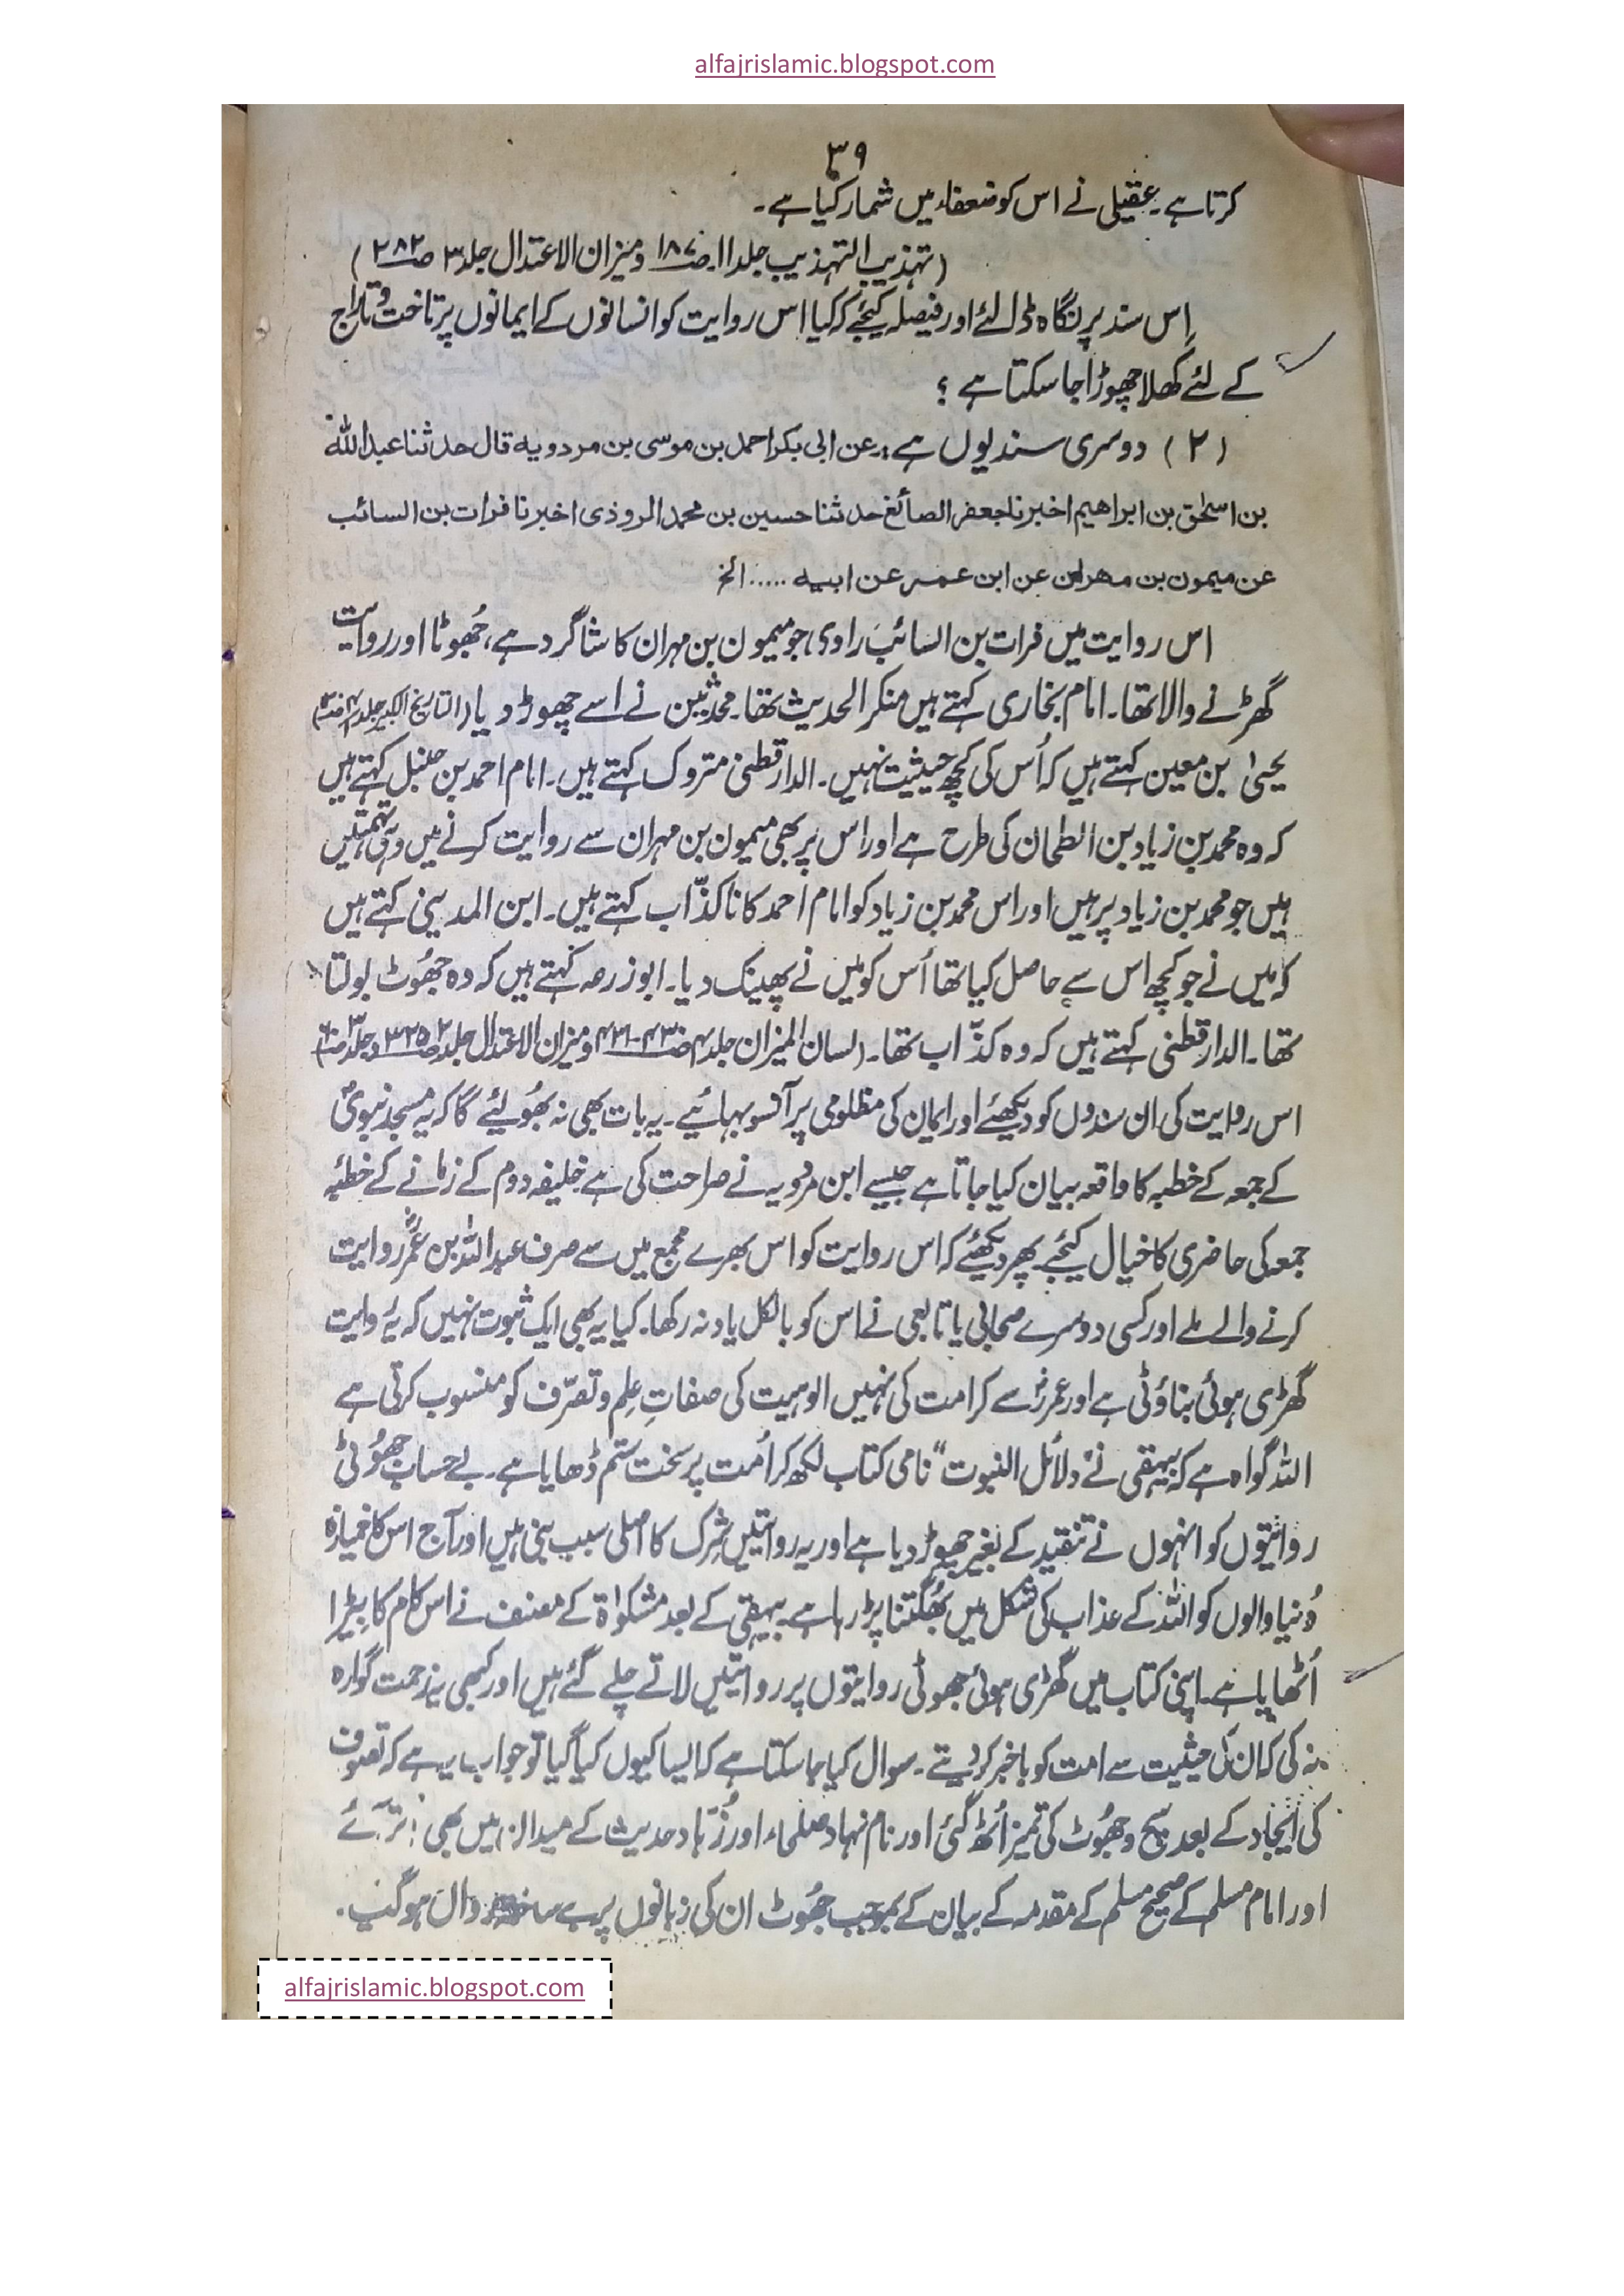 alfajrislamic.blogspot.com
۳۹
کرتا ہے۔ عقیلی نے اس کو ضعفاء میں شمار کیا ہے۔
(تہذیب التہذیب جلد ۱۱۔ ص ۱۸۷ و میزان الاعتدال جلد ۳ ص ۲۸۲)
اِس سند پر نگاہ ڈالئے اور فیصلہ کیجئے کہ کیا اس روایت کو انسانوں کے ایمانوں پر تاخت و تاراج
کے لئے کھلا چھوڑا جا سکتا ہے ؟
(۲) دوسری سند یوں ہے :۔ عن ابی بکر احمد بن موسی بن مردویہ قال حدثنا عبد اللہ
بن اسحٰق بن ابراھیم اخبرنا جعفر الصائغ حدثنا حسین بن محمد المروذی اخبرنا فرات بن السائب
عن میمون بن مھران عن ابن عمر عن ابیہ ..... الخ
اس روایت میں فرات بن السائب راوی، جو میمون بن مہران کا شاگرد ہے، جُھوٹا اور روایت
گھڑنے والا تھا۔ امام بخاری کہتے ہیں منکر الحدیث تھا۔ محدثین نے اسے چھوڑ دیا (التاریخ الکبیر جلد ۴
یحییٰ بن معین کہتے ہیں کہ اُس کی کچھ حیثیت نہیں۔ الدارقطنی متروک کہتے ہیں۔ امام احمد بن حنبل کہتے ہیں
کہ وہ محمد بن زیاد بن الطحان کی طرح ہے اور اس پر بھی میمون بن مہران سے روایت کرنے میں وہی تہمتیں
ہیں جو محمد بن زیاد پر ہیں اور اس محمد بن زیاد کو امام احمد کانا کذّاب کہتے ہیں۔ ابن المدینی کہتے ہیں
کہ میں نے جو کچھ اس سے حاصل کیا تھا اُس کو میں نے پھینک دیا۔ ابو زرعہ کہتے ہیں کہ وہ جھُوٹ بولتا
تھا۔ الدارقطنی کہتے ہیں کہ وہ کذّاب تھا۔ (لسان المیزان جلد ۴ ص ۴۳۰-۴۳۱ و میزان الاعتدال جلد ۲ ص ۳۲۵ و جلد ۳
اس روایت کی ان سندوں کو دیکھئے اور ایمان کی مظلومی پر آنسو بہائیے۔ یہ بات بھی نہ بھُولئے گا کہ یہ مسجد نبویؐ
کے جمعہ کے خطبہ کا واقعہ بیان کیا جاتا ہے جیسے ابن مردویہ نے صراحت کی ہے خلیفہ دوم کے زمانے کے خطبۂ
جمعہ کی حاضری کا خیال کیجئے پھر دیکھئے کہ اس روایت کو اس بھرے مجمع میں سے صرف عبد اللہ بن عمرؓ روایت
کرنے والے ملے اور کسی دوسرے صحابی یا تابعی نے اس کو بالکل یاد نہ رکھا۔ کیا یہ بھی ایک ثبوت نہیں کہ یہ روایت
گھڑی ہوئی بناؤٹی ہے اور عمرؓ سے کرامت کی نہیں الوہیت کی صفاتِ علِم و تصرّف کو منسوب کرتی ہے
اللہ گواہ ہے کہ بیہقی نے "دلائل النبوت" نامی کتاب لکھ کر اُمت پر سخت ستم ڈھایا ہے۔ بے حساب جھُوٹی
روایتوں کو انہوں نے تنقید کے بغیر چھوڑ دیا ہے اور یہ روایتیں شِرک کا اصلی سبب بنی ہیں اور آج اس کا خمیازہ
دُنیا والوں کو اللہ کے عذاب کی شکل میں بھُگتنا پڑ رہا ہے۔ بیہقی کے بعد مشکوٰۃ کے مصنف نے اس کام کا بیڑا
اُٹھایا ہے۔ اپنی کتاب میں گھڑی ہوئی جھوٹی روایتوں پر روایتیں لاتے چلے گئے ہیں اور کبھی یہ زحمت گوارہ
نہ کی کہ ان کی حیثیت سے امت کو باخبر کر دیتے۔ سوال کیا جا سکتا ہے کہ ایسا کیوں کیا گیا تو جواب یہ ہے کہ تصوف
کی ایجاد کے بعد سچ و جھُوٹ کی تمیز اُٹھ گئی اور نام نہاد صلحاء اور زُہّاد حدیث کے میدان میں بھی اتر آئے
اور امام مسلم کے صحیح مسلم کے مقدمہ کے بیان کے بموجب جھُوٹ ان کی زبانوں پر بے ساختہ رواں ہو گیا۔
alfajrislamic.blogspot.com